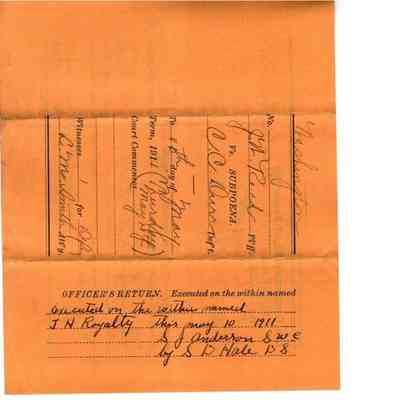 Washington
No.
J N Reid Pl'ff.
Vs. SUBPOENA.
C C Deft.
To day of May
Term, 1911
Court Commences
Witnesses 1 for Dft
Att'y.
OFFICER'S RETURN. Executed on the within named
executed on the within named
J. H. Royalty this may 10 1911
S J Anderson S W C
by S D Hale D S